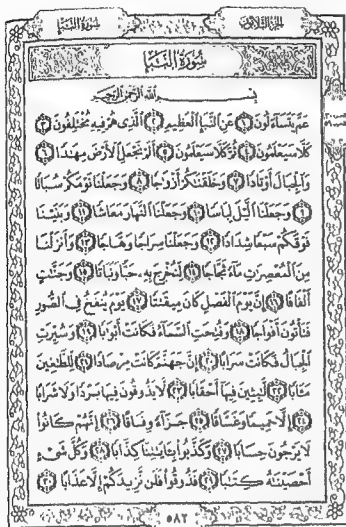 الجزء الثلاثون
سورة النبأ
سُورَةُ النَّبَإِ
بِسْمِ اللَّهِ الرَّحْمَٰنِ الرَّحِيمِ
عَمَّ يَتَسَاءَلُونَ ١ عَنِ النَّبَإِ الْعَظِيمِ ٢ الَّذِي هُمْ فِيهِ مُخْتَلِفُونَ ٣
كَلَّا سَيَعْلَمُونَ ٤ ثُمَّ كَلَّا سَيَعْلَمُونَ ٥ أَلَمْ نَجْعَلِ الْأَرْضَ مِهَٰدًا ٦
وَالْجِبَالَ أَوْتَادًا ٧ وَخَلَقْنَٰكُمْ أَزْوَٰجًا ٨ وَجَعَلْنَا نَوْمَكُمْ سُبَاتًا
٩ وَجَعَلْنَا الَّيْلَ لِبَاسًا ١٠ وَجَعَلْنَا النَّهَارَ مَعَاشًا ١١ وَبَنَيْنَا
فَوْقَكُمْ سَبْعًا شِدَادًا ١٢ وَجَعَلْنَا سِرَاجًا وَهَّاجًا ١٣ وَأَنزَلْنَا
مِنَ الْمُعْصِرَٰتِ مَاءً ثَجَّاجًا ١٤ لِّنُخْرِجَ بِهِ حَبًّا وَنَبَاتًا ١٥ وَجَنَّٰتٍ
أَلْفَافًا ١٦ إِنَّ يَوْمَ الْفَصْلِ كَانَ مِيقَٰتًا ١٧ يَوْمَ يُنفَخُ فِي الصُّورِ
فَتَأْتُونَ أَفْوَاجًا ١٨ وَفُتِحَتِ السَّمَاءُ فَكَانَتْ أَبْوَٰبًا ١٩ وَسُيِّرَتِ
الْجِبَالُ فَكَانَتْ سَرَابًا ٢٠ إِنَّ جَهَنَّمَ كَانَتْ مِرْصَادًا ٢١ لِّلطَّٰغِينَ
مَـَٔابًا ٢٢ لَّٰبِثِينَ فِيهَا أَحْقَابًا ٢٣ لَّا يَذُوقُونَ فِيهَا بَرْدًا وَلَا شَرَابًا
٢٤ إِلَّا حَمِيمًا وَغَسَّاقًا ٢٥ جَزَاءً وِفَاقًا ٢٦ إِنَّهُمْ كَانُوا
لَا يَرْجُونَ حِسَابًا ٢٧ وَكَذَّبُوا بِـَٔايَٰتِنَا كِذَّابًا ٢٨ وَكُلَّ شَيْءٍ
أَحْصَيْنَٰهُ كِتَٰبًا ٢٩ فَذُوقُوا فَلَن نَّزِيدَكُمْ إِلَّا عَذَابًا ٣٠
٥٨٢